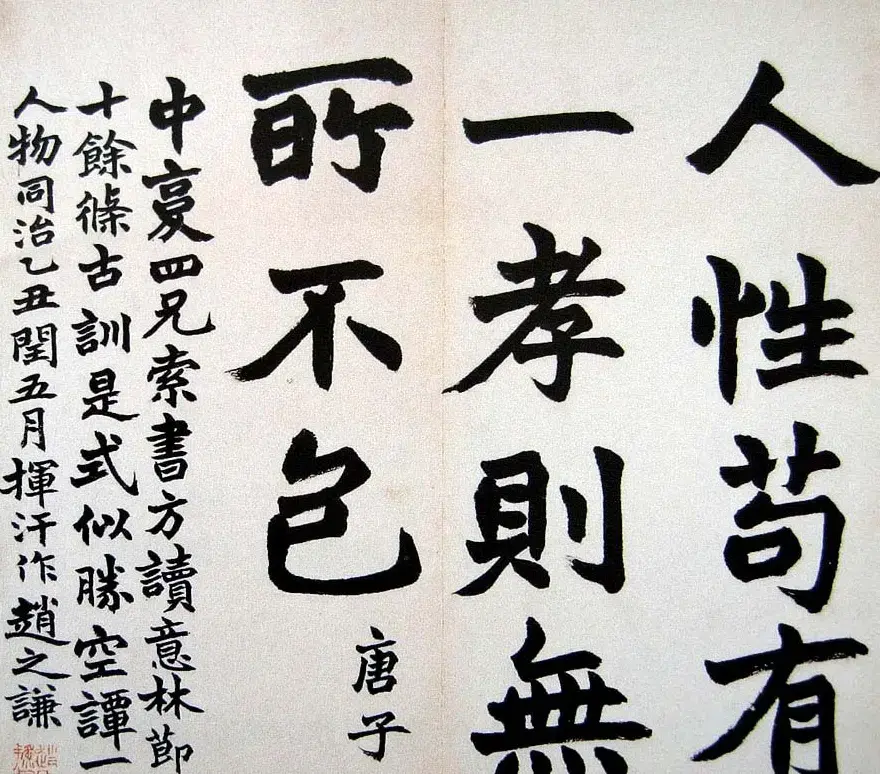 人性苟有
一孝則無
所不包
唐子
中四兄索書方讀意林節
十餘條古訓是式似勝空譚一
人物同治乙丑閏五月揮汗作趙之謙